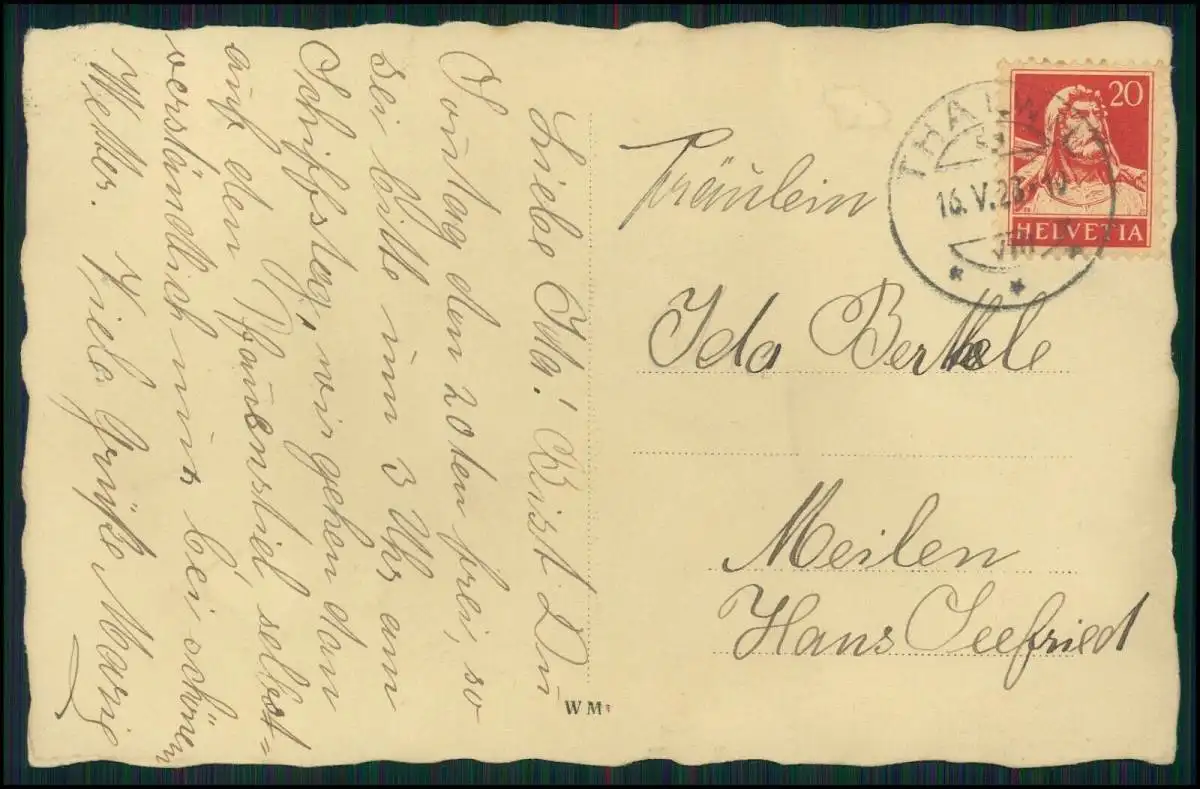 Liebe Ida! Bist Du
Sontag den 20ten frei, so
sei bitte um 3 Uhr am
Schiffsteg, wir gehen dan
auf den Pfanenstiel selbst=
verständlich nur bei schönem
Wetter. Viele Grüße Marie
Fräulein
Ida Berthele
Meilen
Hans Seefried
WM
THALWIL
16.V.28-10
VIII
20
HELVETIA